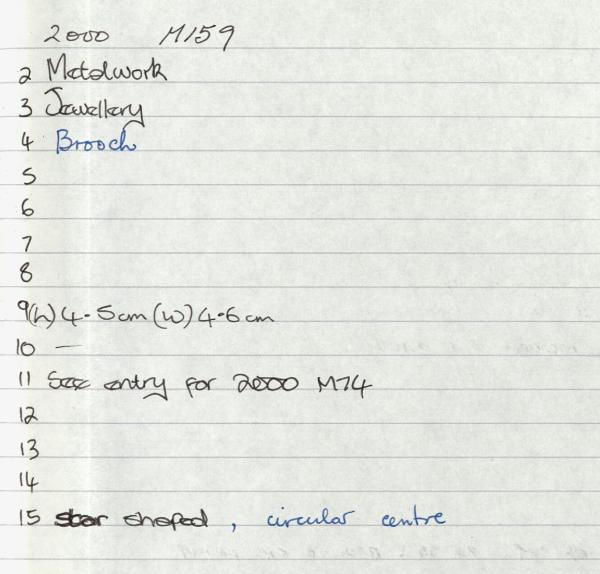 2000 M159
2 Metalwork
3 Jewellery
4 Brooch
5
6
7
8
9(h) 4.5cm (w) 4.6cm
10 —
11 See entry for 2000 M74
12
13
14
15 star shaped, circular centre